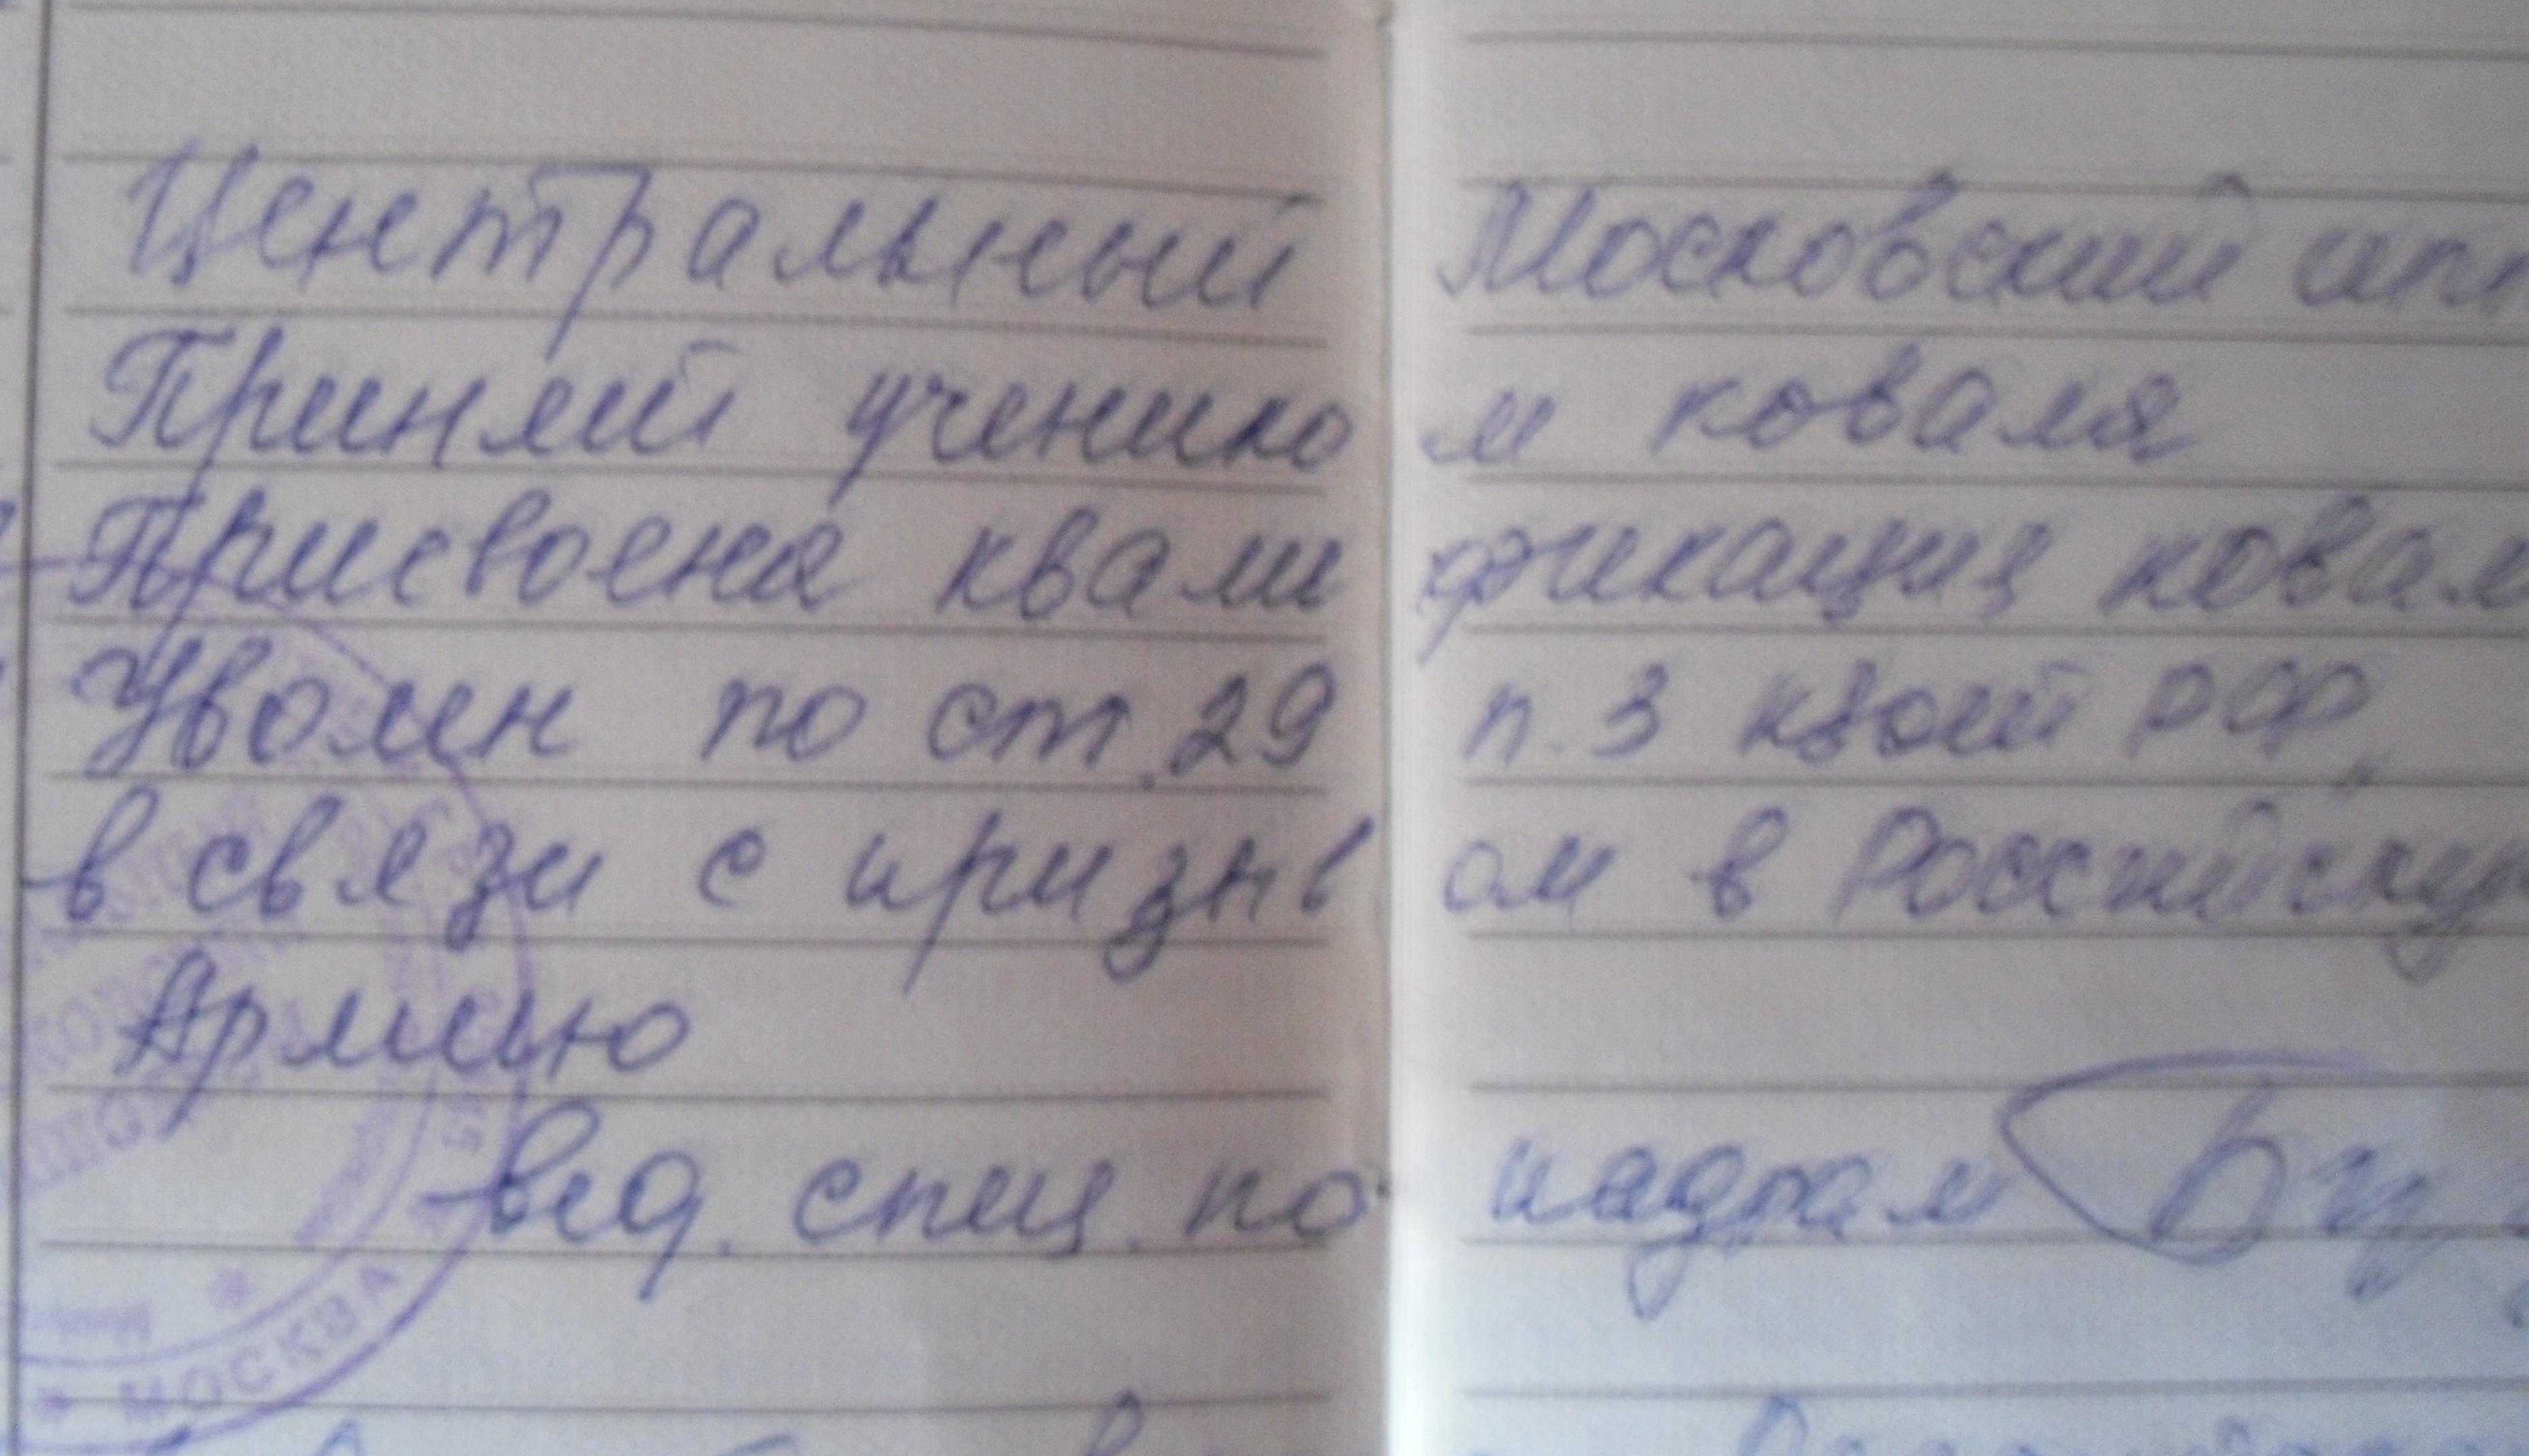 Центральный Московский ипп
Принят учеником коваля
Присвоена квалификация ковал
Уволен по ст. 29 п. 3 кзот РФ,
в связи с призывом в Российскую
Армию
вед. спец. по кадрам
МОСКВА